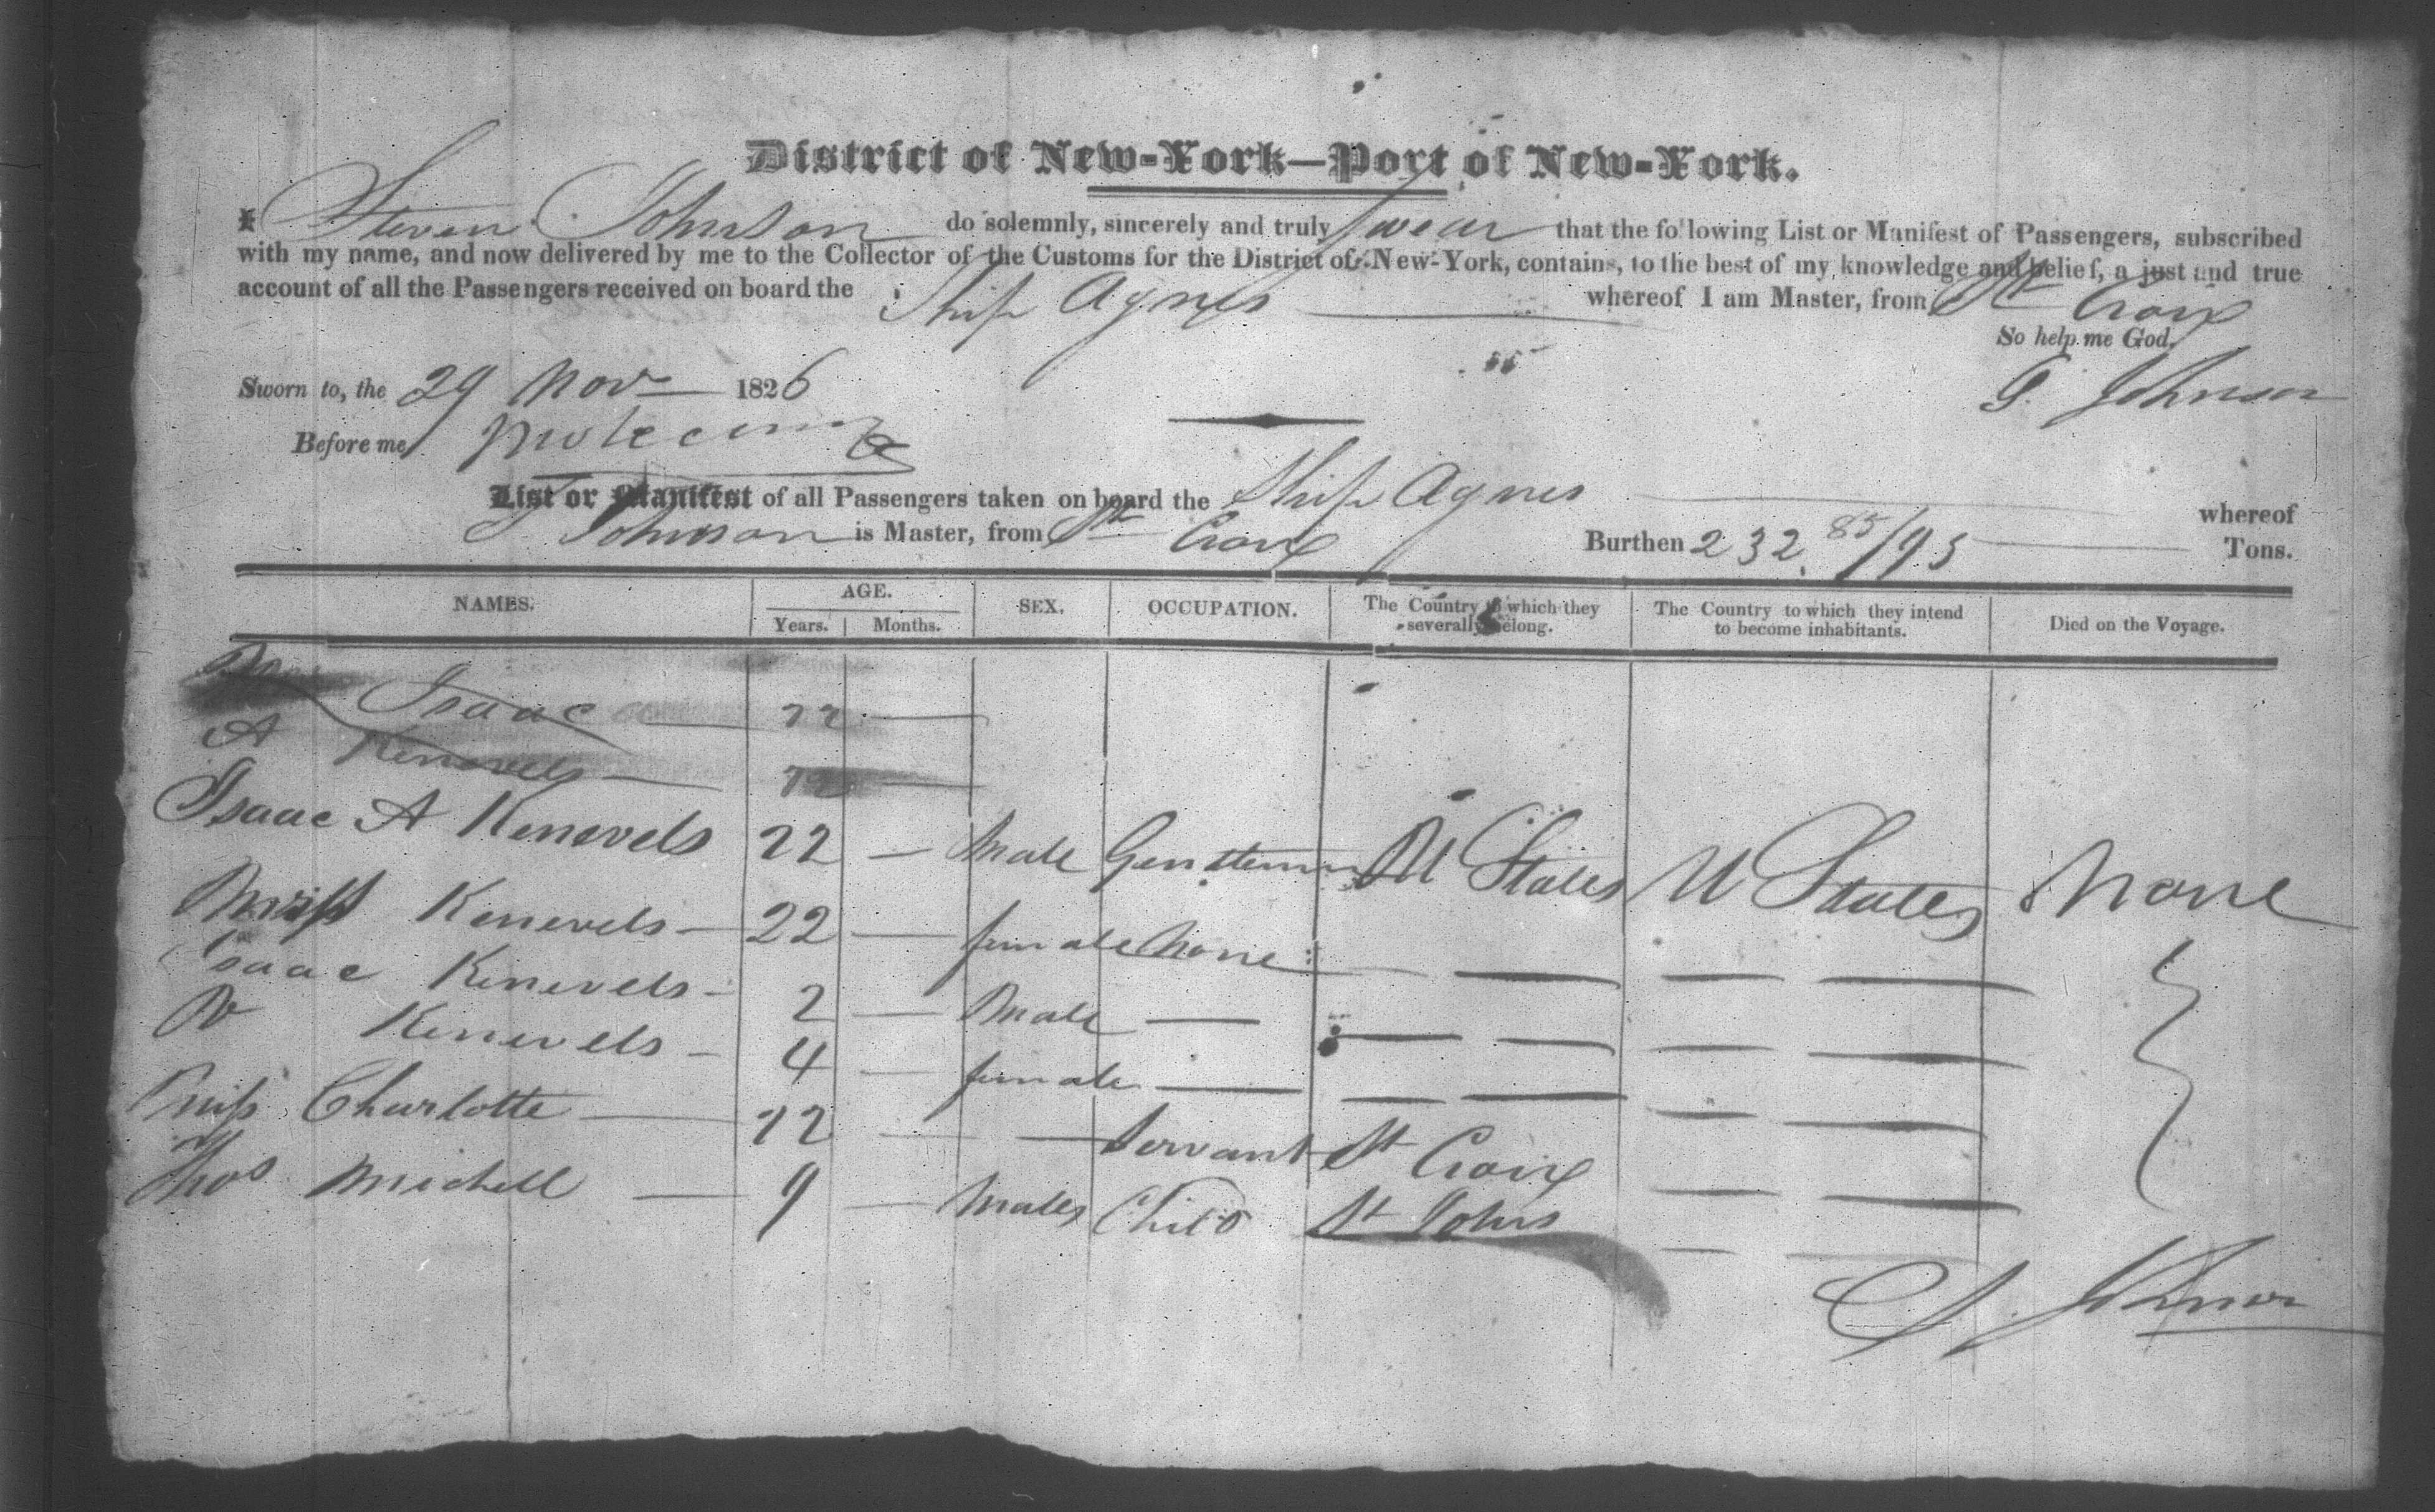 District of New-York—Port of New-York.
I Steven Johnson do solemnly, sincerely and truly swear that the following List or Manifest of Passengers, subscribed
with my name, and now delivered by me to the Collector of the Customs for the District of New-York, contains, to the best of my knowledge and belief, a just and true
account of all the Passengers received on board the Ship Agnes whereof I am Master, from St Croix
So help me God.
Sworn to, the 29 Nov 1826 S. Johnson
Before me
List or Manifest of all Passengers taken on board the Ship Agnes whereof
S Johnson is Master, from St Croix Burthen 232. 85/95 Tons.
NAMES. AGE. SEX. OCCUPATION. The Country to which they severally belong. The Country to which they intend to become inhabitants. Died on the Voyage.
Years. Months.
Isaac 22
A Kenevels 22
Isaac A Kenevels 22 — Male Gentleman U States U States None
Kenevels — 22 — female None — — — —
Isaac Kenevels — 2 — Male — — — — —
Kenevels — 4 — female — — — — —
Miss Charlotte — 22 — — Servant St Croix — —
Thos Michell — 9 — Male Child St Johns — —
S. Johnson